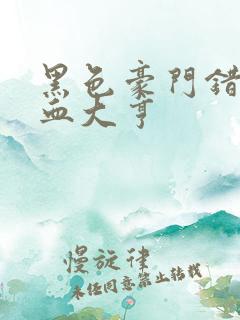 黑色豪門錯
血大亨
慢旋律
未经同意禁止转载